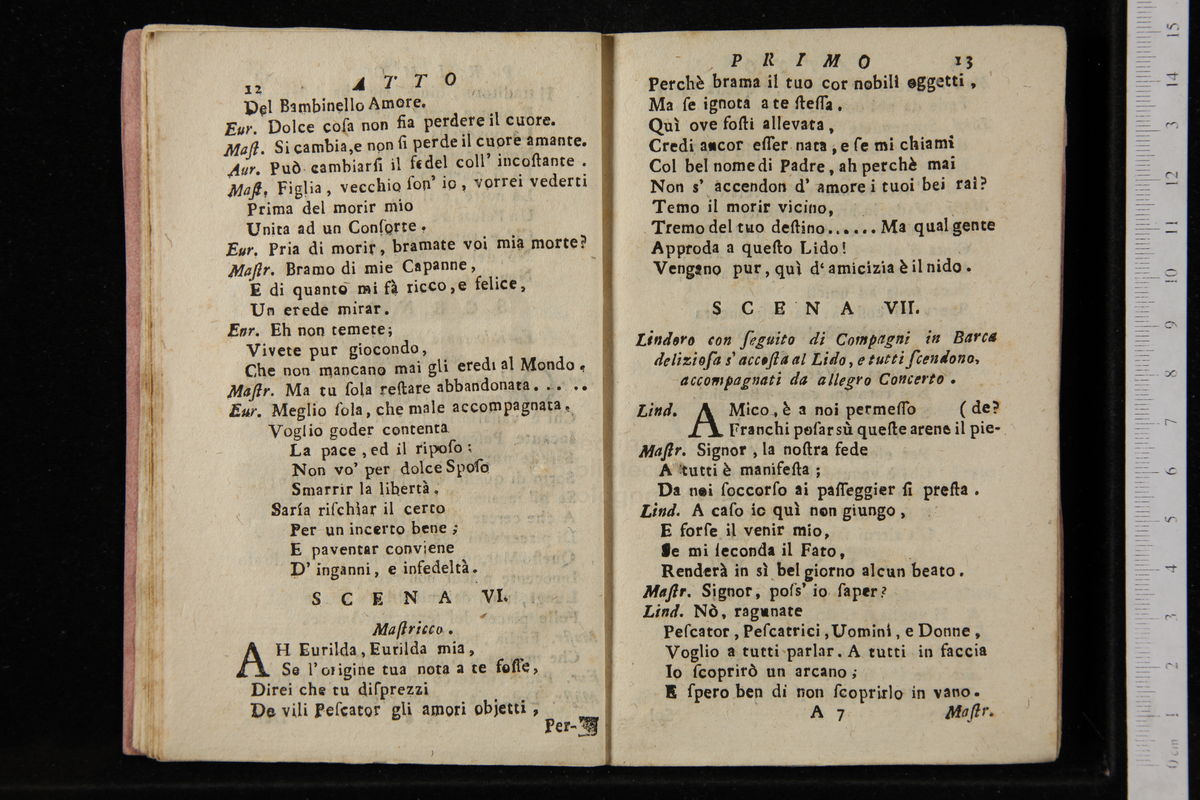 12 ATTO
Del Bambinello Amore.
Eur. Dolce coſa non fia perdere il cuore.
Maſt. Si cambia,e non ſi perde il cuore amante.
Aur. Può cambiarſi il fedel coll' incoſtante .
Maſt. Figlia , vecchio ſon' io , vorrei vederti
Prima del morir mio
Unita ad un Conſorte .
Eur. Pria di morir, bramate voi mia morte?
Maſtr. Bramo di mie Capanne,
E di quanto mi fà ricco,e felice,
Un erede mirar.
Enr. Eh non temete;
Vivete pur giocondo,
Che non mancano mai gli eredi al Mondo .
Maſtr. Ma tu ſola reſtare abbandonata. . . . .
Eur. Meglio ſola, che male accompagnata.
Voglio goder contenta
La pace , ed il ripoſo ;
Non vo' per dolce Spoſo
Smarrir la libertà.
Saría riſchiar il certo
Per un incerto bene ;
E paventar conviene
D' inganni, e infedeltà.
SCENA VI.
Maſtricco .
AH Eurilda, Eurilda mia,
Se l'origine tua nota a te foſſe,
Direi che tu diſprezzi
De vili Peſcator gli amori objetti ,
Per-
PRIMO 13
Perchè brama il tuo cor nobili oggetti ,
Ma ſe ignota a te ſteſſa ,
Quì ove foſti allevata ,
Credi ancor eſſer nata , e ſe mi chiami
Col bel nome di Padre , ah perchè mai
Non s' accendon d' amore i tuoi bei rai?
Temo il morir vicino,
Tremo del tuo deſtino...... Ma qual gente
Approda a queſto Lido !
Vengano pur , quì d‘ amicizia è il nido .
SCENA VII.
Lindoro con ſeguito di Compagni in Barca
delizioſa s' accoſta al Lido , e tutti ſcendono,
accompagnati da allegro Concerto .
Lind. AMico , è a noi permeſſo (de?
Franchi poſar sù queſte arene il pie-
Maſtr. Signor , la noſtra fede
A tutti è manifeſta ;
Da noi ſoccorſo ai paſſeggier ſi preſta .
Lind. A caſo io quì non giungo ,
E forſe il venir mio,
Se mi ſeconda il Fato,
Renderà in sì bel giorno alcun beato.
Maſtr. Signor, poſs' io ſaper?
Lind. Nò, ragunate
Peſcator , Peſcatrici , Uomini , e Donne ,
Voglio a tutti parlar. A tutti in faccia
Io ſcoprirò un arcano ;
E ſpero ben di non ſcoprirlo in vano.
A 7 Maſtr.
0 cm 1 2 3 4 5 6 7 8 9 10 11 12 13 14 15